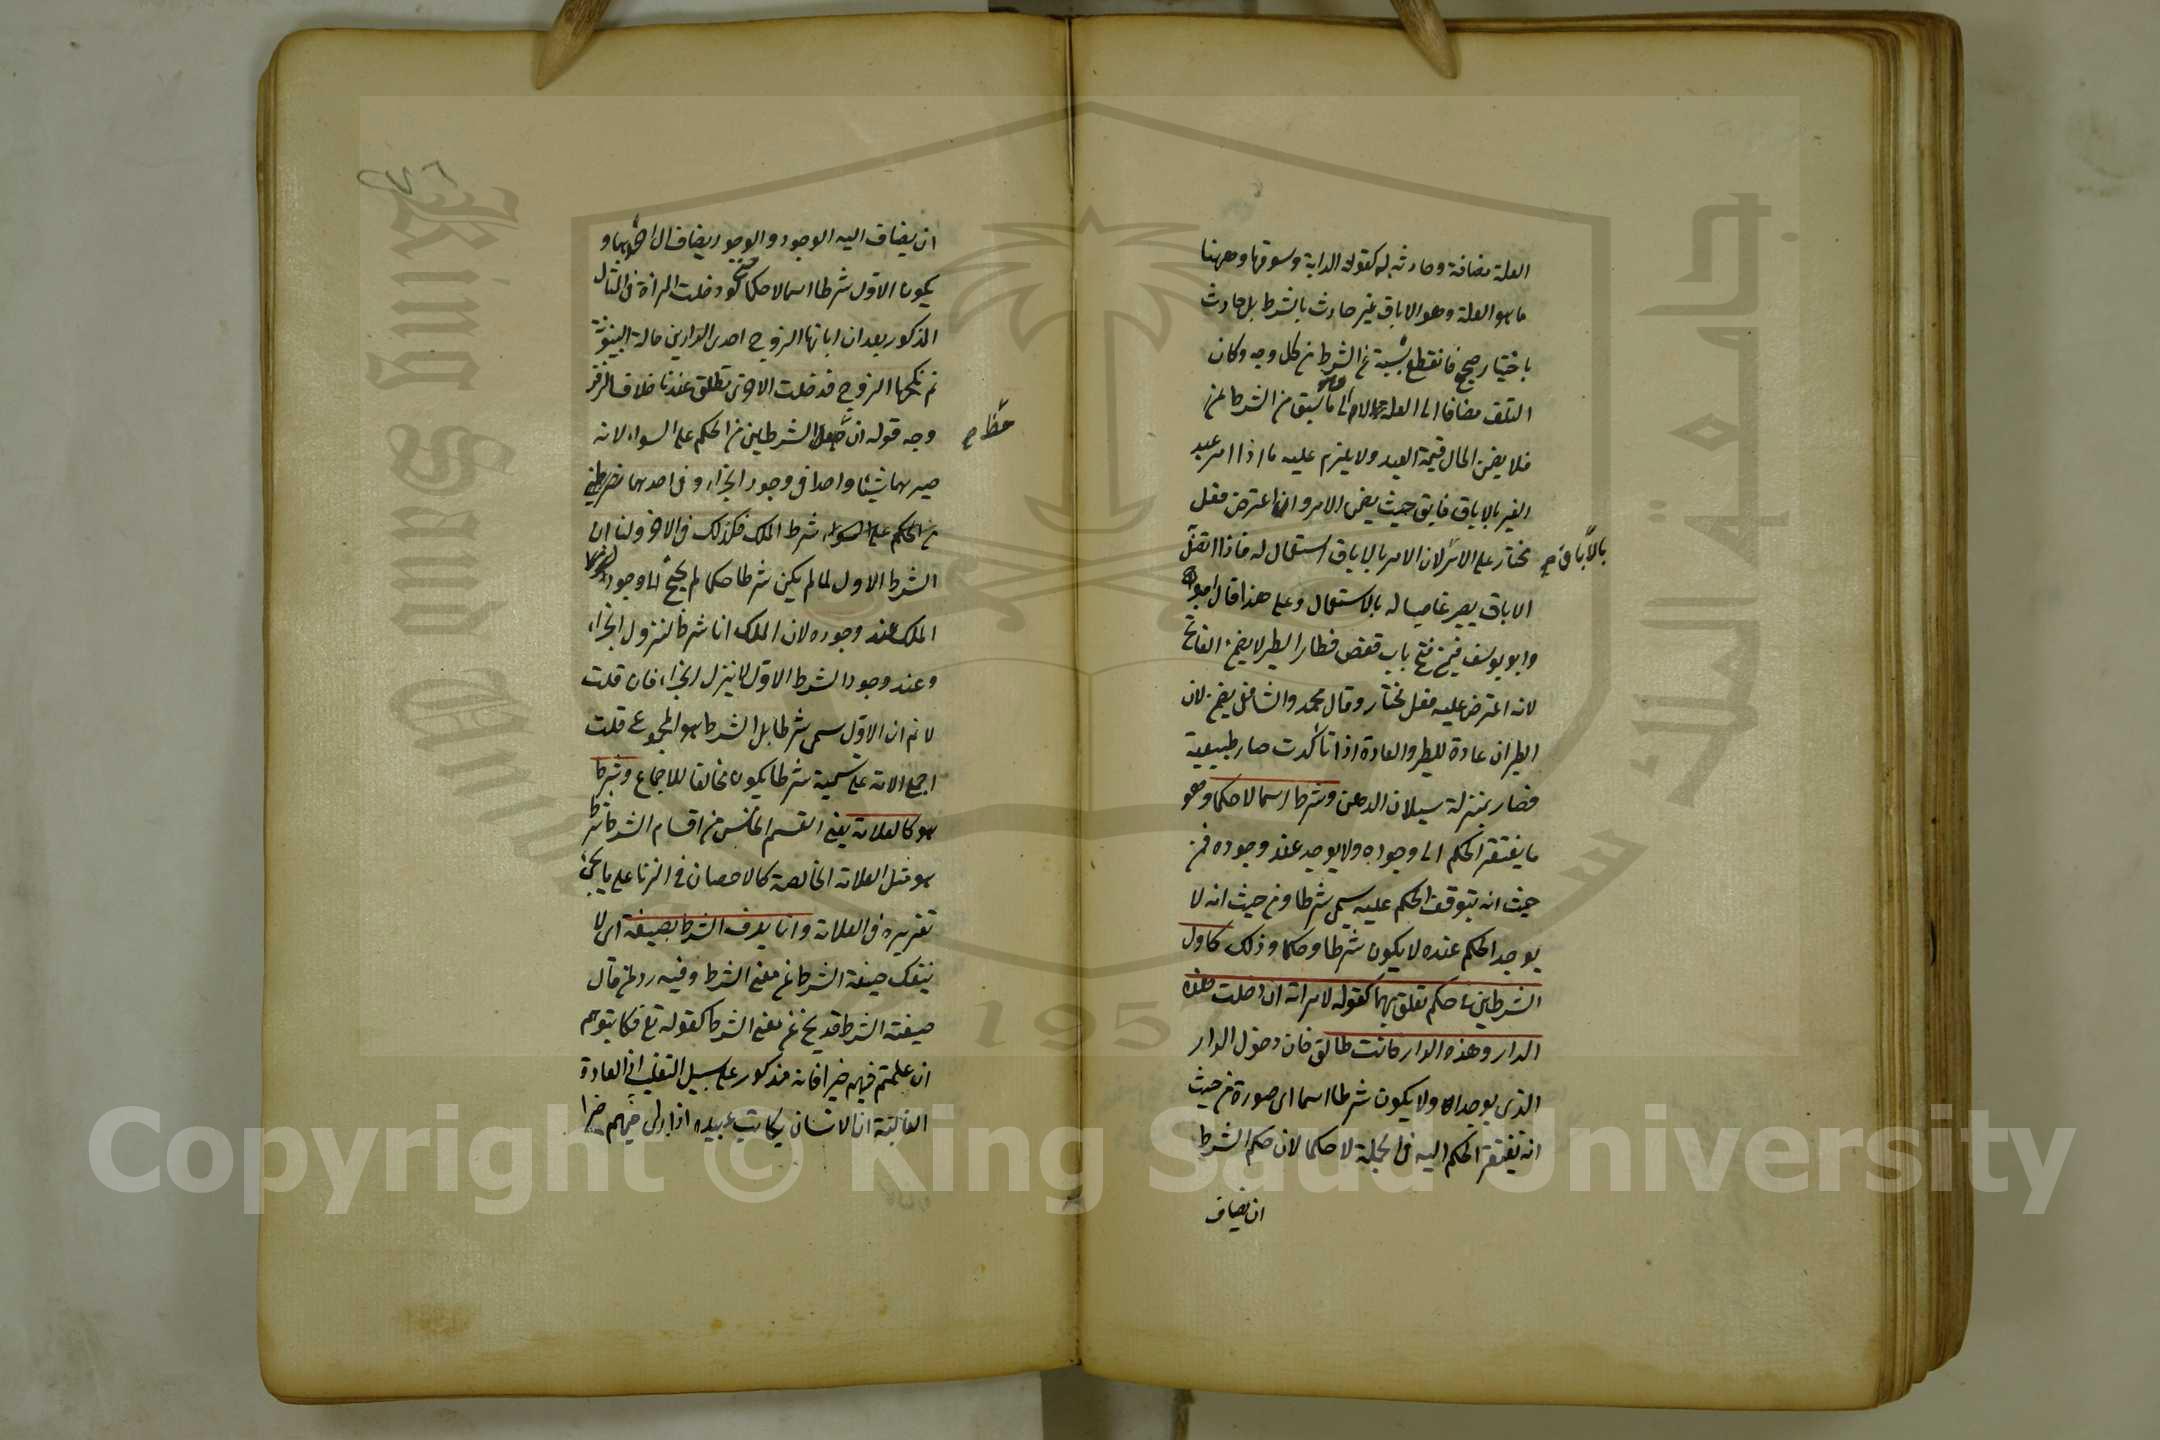 العلة مضافة وحادثة به كقود الدابة وسوقها وههنا
ما هو العلة وهو الاباق غير حادث بالشرط بل حادث
باختيار صحيح فانقطع نسبته عن الشرط من كل وجه وكان
التلف مضافا الى العلة لا الى ما سبق من الشرط
فلا يضمن الحال قيمة العبد ولا يلزم عليه ما اذا امر عبد
الغير بالاباق فابق حيث يضمن الامر وان اعترض فعل
مختار على الامر لان الامر بالاباق استعمال له فاذا اتصل
بالاباق صح
الاباق يصير غاصبا له بالاستعمال وعلى هذا قال ابو
وابو يوسف فيمن فتح باب قفص فطار الطير لا يضمن الفاتح
لانه اعترض عليه فعل مختار وقال محمد والشافعي يضمن لان
الطيران عادة للطير والعادة اذا تأكدت صار طبيعية
فصار بمنزلة سيلان الدهن وشرط اسما لا حكما وهو
ما يفتقر الحكم الى وجوده ولا يوجد عند وجوده فمن
حيث انه يتوقف الحكم عليه سمى شرطا ومن حيث انه لا
يوجد الحكم عنده لا يكون شرطا وحكما وذلك كاول
الشرطين في حكم تعلق بهما كقوله لامراته ان دخلت هذه
الدار وهذه الدار فانت طالق فان دخول الدار
الذى يوجد اولا يكون شرطا اسما اى صورة من حيث
انه يفتقر الحكم اليه في الجملة لا حكما لان حكم الشرط
ان يضاف
ان يضاف اليه الوجود والوجود يضاف الى اخرهما و
يكون الاول شرطا اسما لا حكما حتى لو دخلت المراة في المثال
المذكور بعد ان ابانها الزوج احدى الدارين حالة البينونة
ثم نكحها الزوج فدخلت الاخرى تطلق عندنا خلافا لزفر
وجه قوله ان جعل الشرطين من الحكم على السواء لانه
حظ صح
صيرهما شيئا واحدا في وجود الجزاء وفي احدهما
من الحكم على السواء شرط الملك فكذلك في الاخر ولنا ان
الشرط الاول لما لم يكن شرطا حكما لم يحتج الى وجود
الملك عند وجوده لان الملك انما شرط لنزول الجزاء
وعند وجود الشرط الاول لا ينزل الجزاء فان قلت
لا نم ان الاول سمى شرطا بل الشرط هو المجموع قلت
اجمع الامة على تسمية شرطا يكون مخالفا للاجماع وشرط
هو كالعلامة يعني القسم الخامس من اقسام الشرط شرط
هو مثل العلامة الخالصة كالاحصان في الزنا على ما يجئ
تقريره في العلامة وانما يعرف الشرط بصيغة اى لا
ينفك صيغة الشرط عن معنى الشرط وفيه رد لمن قال
صيغة الشرط قد يخ عن معنى الشرط كقوله تع فكاتبوهم
ان علمتم فيهم خيرا فانه مذكور على سبيل التغليب اذ العادة
الغالبة ان الانسان يكاتب عبيده اذا راى فيهم خيرا